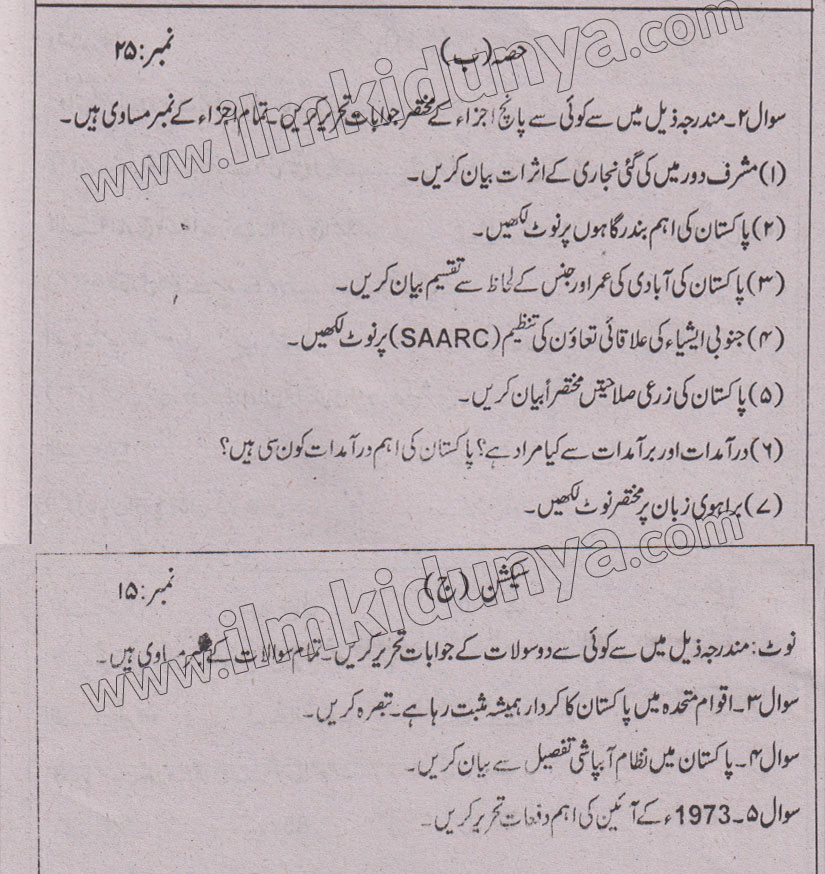 حصہ (ب) نمبر: ۲۵
سوال ۲۔ مندرجہ ذیل میں سے کوئی سے پانچ اجزاء کے مختصر جوابات تحریر کریں۔ تمام اجزاء کے نمبر مساوی ہیں۔
(۱) مشرف دور میں کی گئی نجاری کے اثرات بیان کریں۔
(۲) پاکستان کی اہم بندرگاہوں پر نوٹ لکھیں۔
(۳) پاکستان کی آبادی کی عمر اور جنس کے لحاظ سے تقسیم بیان کریں۔
(۴) جنوبی ایشیاء کی علاقائی تعاؤن کی تنظیم (SAARC) پر نوٹ لکھیں۔
(۵) پاکستان کی زرعی صلاحیتیں مختصراً بیان کریں۔
(۶) درآمدات اور برآمدات سے کیا مراد ہے؟ پاکستان کی اہم درآمدات کون سی ہیں؟
(۷) براہوی زبان پر مختصر نوٹ لکھیں۔
سیکشن (ج) نمبر: ۱۵
نوٹ: مندرجہ ذیل میں سے کوئی سے دو سولات کے جوابات تحریر کریں۔ تمام سوالات کے نمبر مساوی ہیں۔
سوال ۳۔ اقوام متحدہ میں پاکستان کا کردار ہمیشہ مثبت رہا ہے۔ تبصرہ کریں۔
سوال ۴۔ پاکستان میں نظام آبپاشی تفصیل سے بیان کریں۔
سوال ۵۔ 1973ء کے آئین کی اہم دفعات تحریر کریں۔
www.ilmkidunya.com
www.ilmkidunya.com